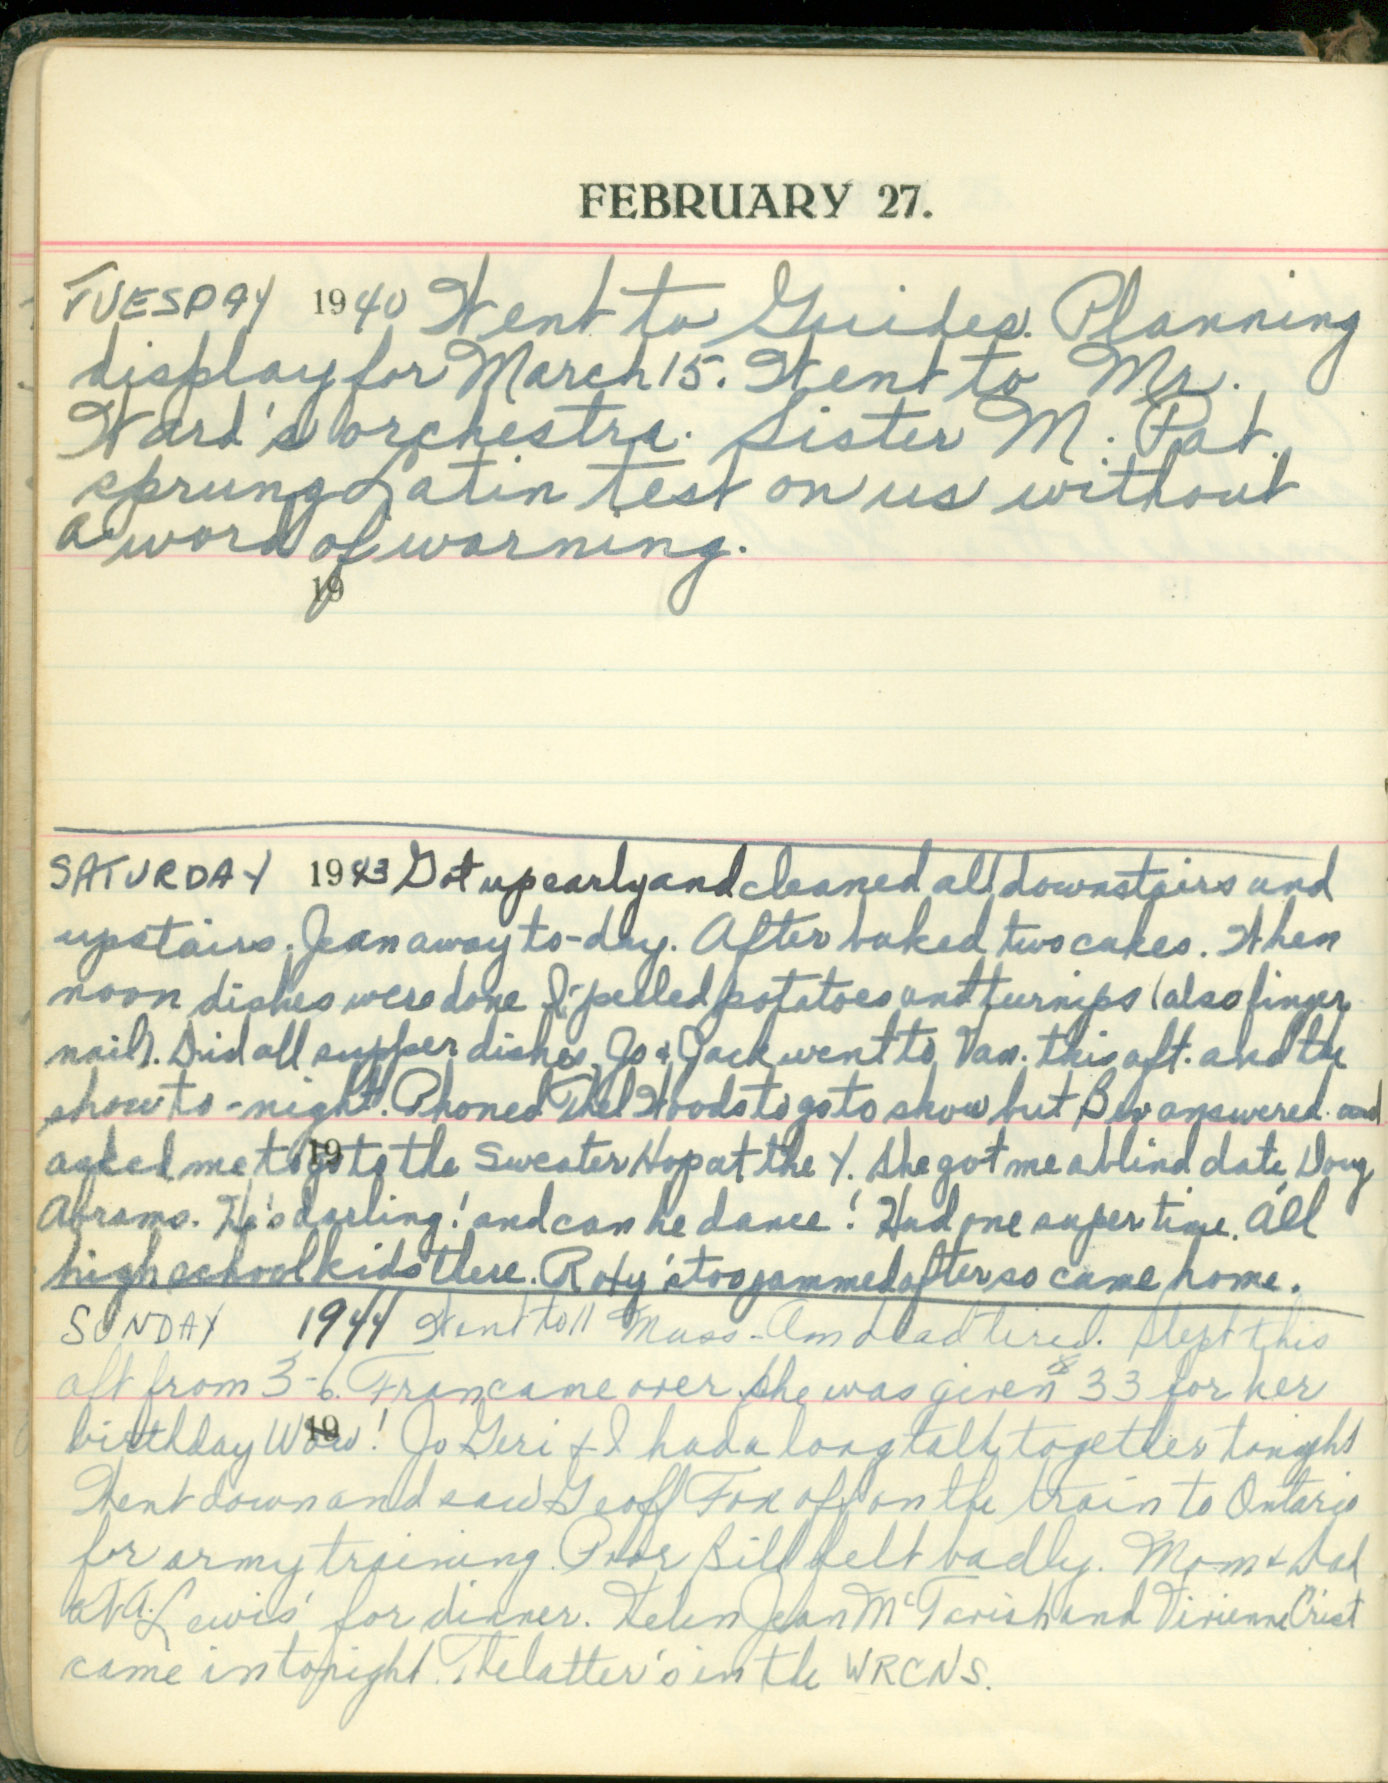 FEBRUARY 27.
TUESDAY 1940 Went to Guides. Planning
display for March 15. Went to Mr.
Ward's orchestra. Sister M. Pat.
sprung Latin test on us without
a word of warning.
19
SATURDAY 1943 Got up early and cleaned all downstairs and
upstairs. Jean away to-day. After baked two cakes. When
noon dishes were done I peeled potatoes and turnips (also finger
nail). Did all supper dishes. Jo & Jack went to Van. this aft. and the
show to-night. Phoned Thel Woods to go to show but Bev answered and
asked me to go to the Sweater Hop at the Y. She got me a blind date, Doug
19
Abrams. He's darling! and can he dance! Had one super time. All
high school kids there. Roxy's too jammed after so came home.
SUNDAY 1944 Went to 11 Mass - Am dead tired. Slept this
aft from 3-6. Fran came over. She was given $33 for her
birthday Wow! Jo Geri & I had a long talk together tonight
19
Went down and saw Geoff Fox off on the train to Ontario
for army training. Poor Bill felt badly. Mom & Dad
at A. Lewis' for dinner. Helen Jean McTavish and Vivienne Crist
came in tonight. The latter's in the WRCNS.